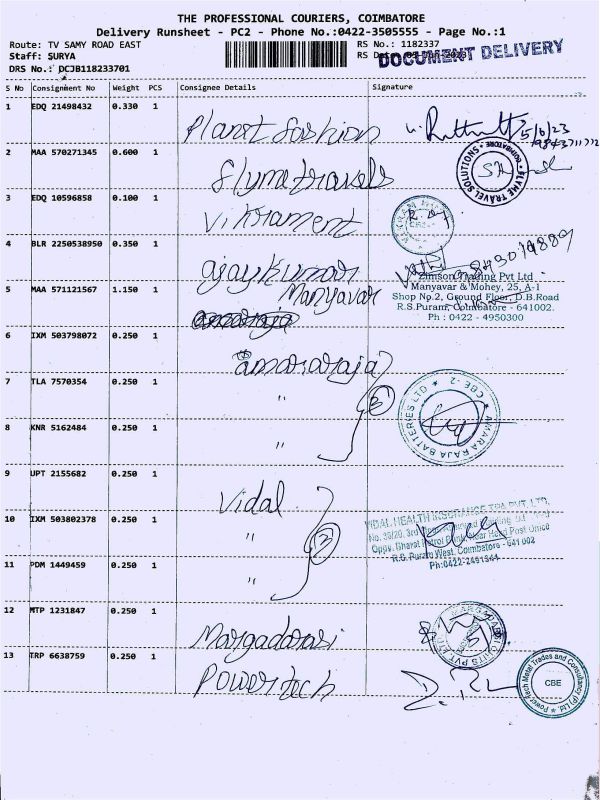 THE PROFESSIONAL COURIERS, COIMBATORE
Delivery Runsheet - PC2 - Phone No.:0422-3505555 - Page No.:1
Route: TV SAMY ROAD EAST RS No.: 1182337
Staff: SURYA RS D
DOCUMENT DELIVERY
DRS No.: DCJB118233701
S No Consignment No Weight PCS Consignee Details Signature
1 EDQ 21498432 0.330 1 Planet fashion
5/6/23
2 MAA 570271345 0.600 1 flyme travels
FLYME TRAVEL SOLUTIONS * COIMBATORE *
3 EDQ 10596858 0.100 1 Vikrament
4 BLR 2250538950 0.350 1 ajay kumar
5 MAA 571121567 1.150 1 Manyavar
Zimson Trading Pvt Ltd
Manyavar & Mohey, 25, A-1
Shop No.2, Ground Floor, D.B.Road
R.S.Puram, Coimbatore - 641002.
Ph : 0422 - 4950300
6 IXM 503798072 0.250 1 amararaja
7 TLA 7570354 0.250 1 "
3
8 KNR 5162484 0.250 1 "
AMARA RAJA BATTERIES LTD * CBE-2 *
9 UPT 2155682 0.250 1 Vidal
10 IXM 503802378 0.250 1 "
3
VIDAL HEALTH INSURANCE TPA PVT. LTD.
No. 36/20, 3rd Floor
Opp. Bharat Petrol Bunk, Near Head Post Office
R.S. Puram West, Coimbatore - 641 002
Ph:0422-2491564
11 PDM 1449459 0.250 1 "
12 MTP 1231847 0.250 1 Margadarasi
13 TRP 6638759 0.250 1 Powertech
Power-Tech Metal Trades and Consultancy (P) Ltd.
CBE